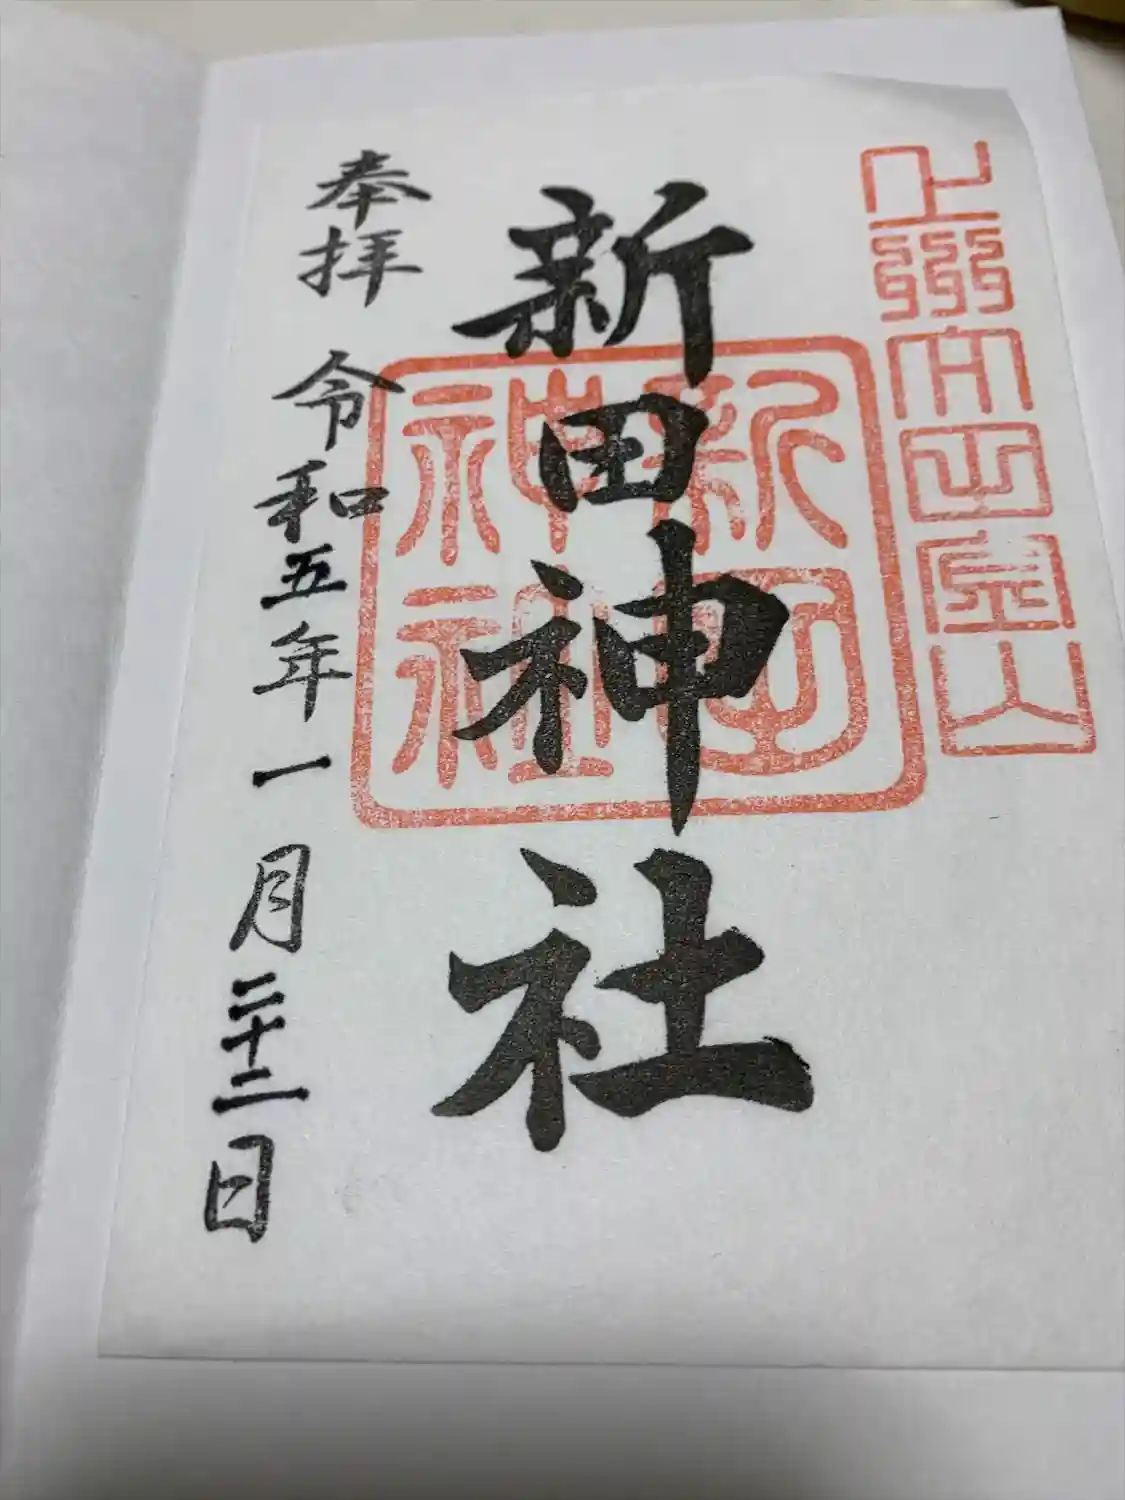 上州太田金山
新田神社
新田
神社
奉拝 令和五年一月二十二日